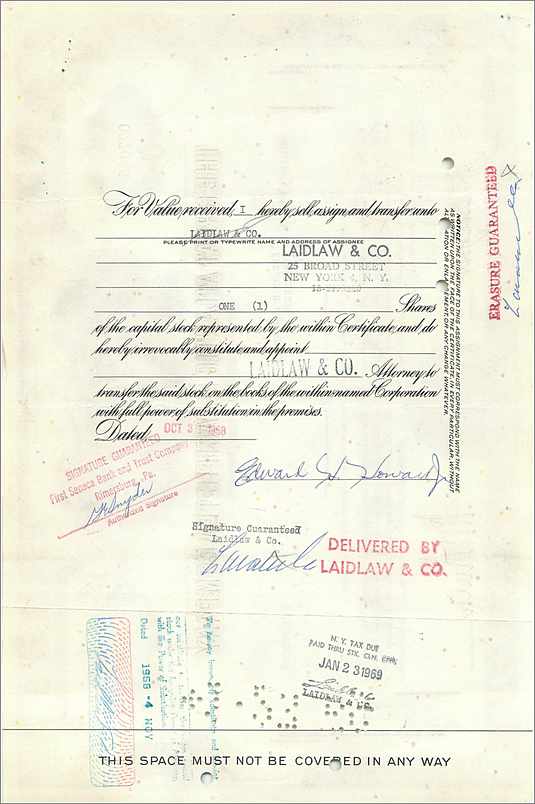 For Value received, I hereby sell, assign and transfer unto
LAIDLAW & CO.
PLEASE PRINT OR TYPEWRITE NAME AND ADDRESS OF ASSIGNEE
LAIDLAW & CO.
25 BROAD STREET
NEW YORK 4, N. Y.
ONE (1) Shares
of the capital stock represented by the within Certificate, and do
hereby irrevocably constitute and appoint
LAIDLAW & CO. Attorney to
transfer the said stock on the books of the within-named Corporation
with full power of substitution in the premises.
Dated OCT 3 1968
NOTICE: THE SIGNATURE TO THIS ASSIGNMENT MUST CORRESPOND WITH THE NAME
AS WRITTEN UPON THE FACE OF THE CERTIFICATE, IN EVERY PARTICULAR, WITHOUT
ALTERATION OR ENLARGEMENT, OR ANY CHANGE WHATEVER.
ERASURE GUARANTEED
SIGNATURE GUARANTEED
First Seneca Bank and Trust Company
Rimersburg, Pa.
Snyder
Authorized Signature
Edward H. Howard Jr
Signature Guaranteed
Laidlaw & Co.
DELIVERED BY
LAIDLAW & CO.
Dated 1968 NOV 4
N. Y. TAX DUE
PAID THRU STK. CLR. CORP.
JAN 23 1969
LAIDLAW & CO.
THIS SPACE MUST NOT BE COVERED IN ANY WAY